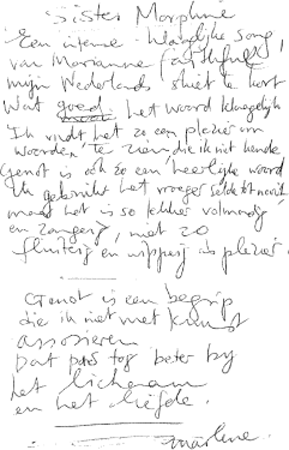 Sister Morphine
Een intense klaaglijke song
van Marianne Faithfull
mijn Nederlands shiet te kort
Wat goed het woord klaagelijk
Ik vindt het zo een plezier om
woorden te zien, die ik niet kende
Genot is ook zo een heerlijk woord
Ik gebruikt het vroeger selde tot nooit
maar het is so lekker volmondig
en zangerig, niet zo
fluiterig en wipperig als plezier.
Genot is een begrip
die ik niet met kunst
assosieren
Dat pas tog beter by
het lichaam
en het liefde.
Marlene.